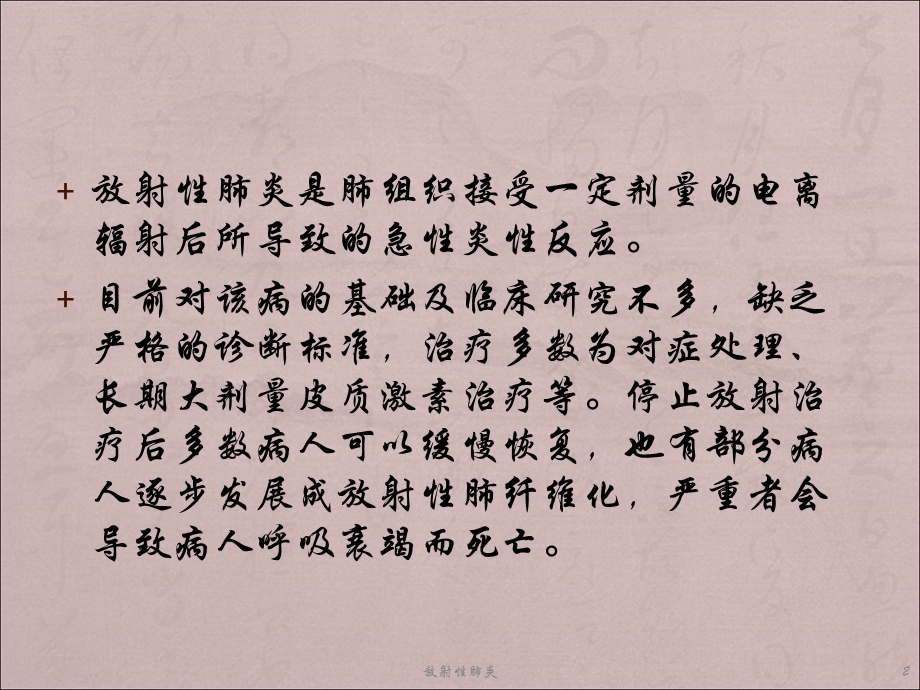 + 放射性肺炎是肺组织接受一定剂量的电离
辐射后所导致的急性炎性反应。
+ 目前对该病的基础及临床研究不多，缺乏
严格的诊断标准，治疗多数为对症处理、
长期大剂量皮质激素治疗等。停止放射治
疗后多数病人可以缓慢恢复，也有部分病
人逐步发展成放射性肺纤维化，严重者会
导致病人呼吸衰竭而死亡。
放射性肺炎
2